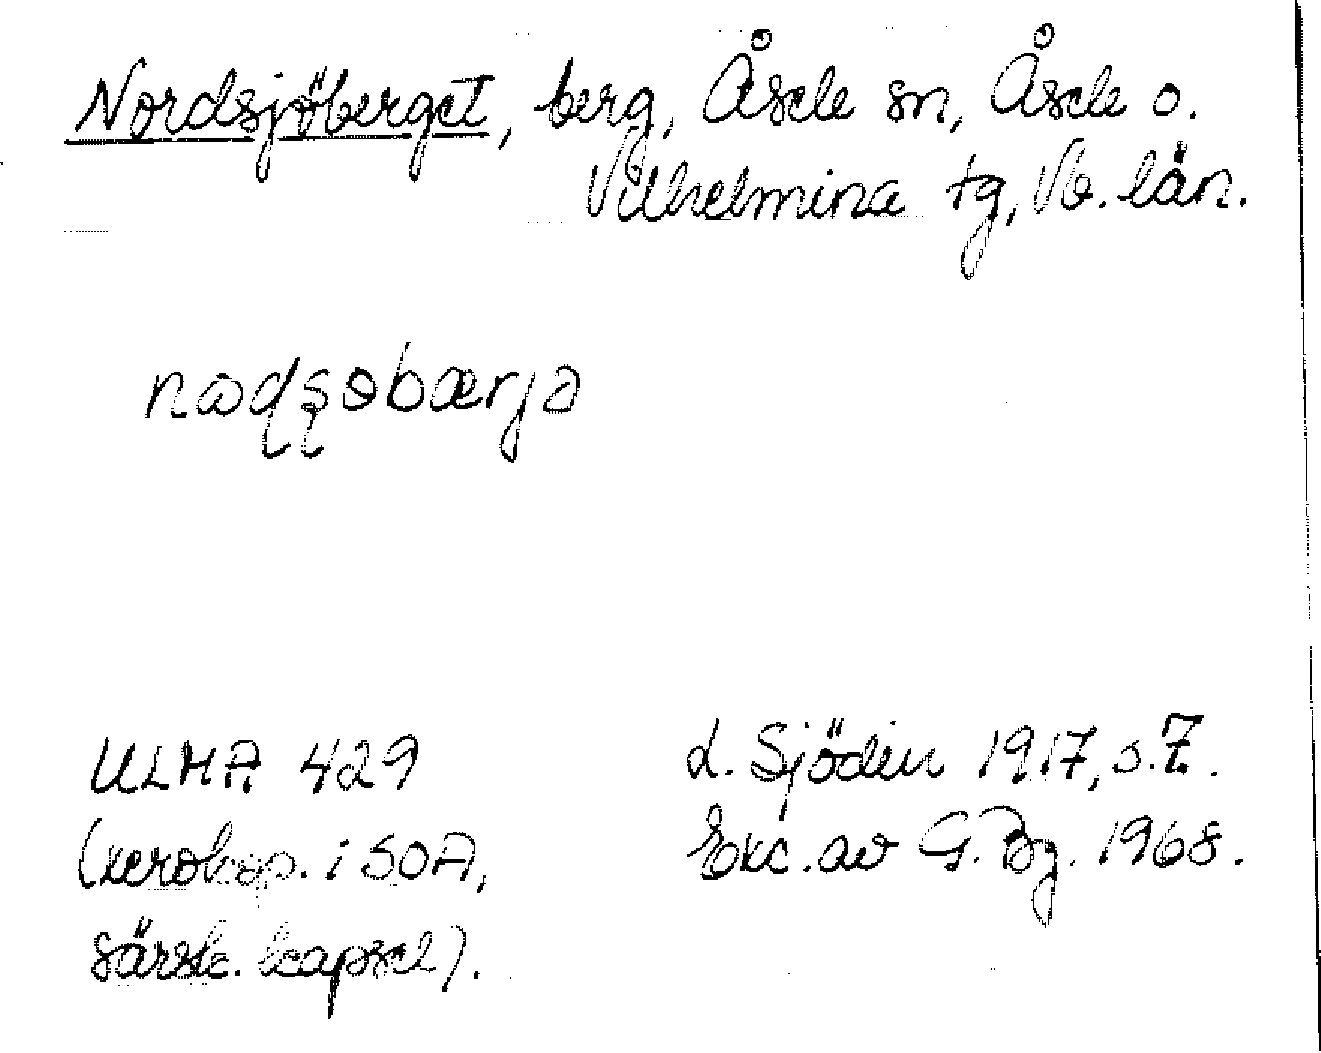 Nordsjöberget, berg, Åsele sn, Åsele o.
Vilhelmina tg, Vb. län.
ULMA 429
(xerokop. i SOA,
särsk. kapsel).
L. Sjödin 1917, s. 7.
Exc. av G. Bg. 1968.